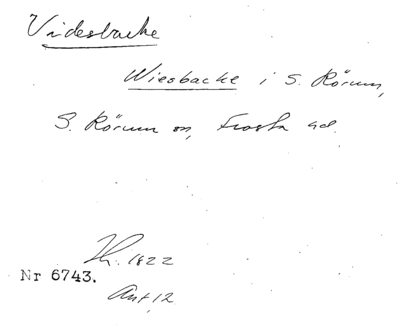 Videsbacke
Wiesbacke i S. Rörum,
S. Rörum sn, Frosta hd.
Th. 1822
Nr 6743.
Ant, 12